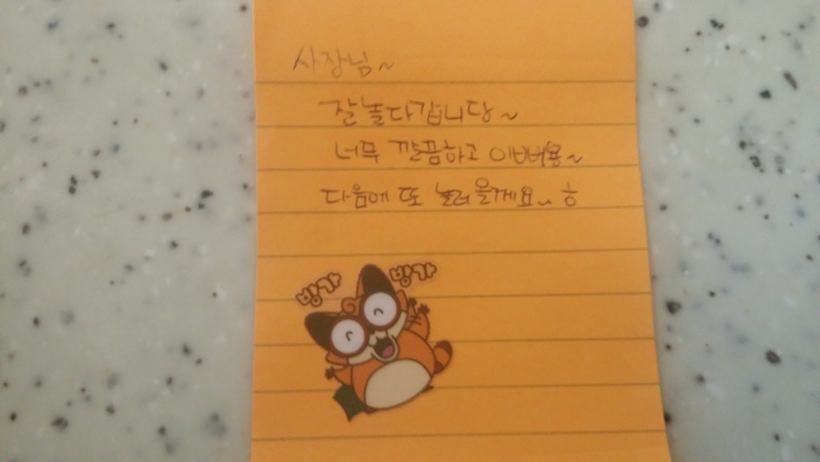 사장님~
잘 놀다갑니당~
너무 깔끔하고 이뻐용~
다음에 또 놀러올게요~ ㅎ
방가 방가